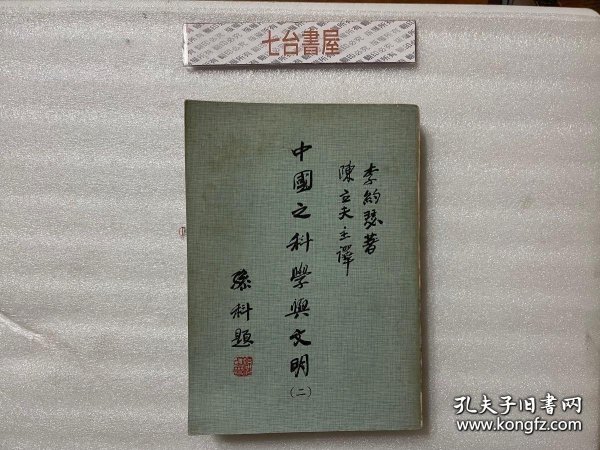 七台書屋
李約瑟著
陳立夫主譯
中國之科學與文明
(二)
孫科題
孔夫子旧书网
www.kongfz.com